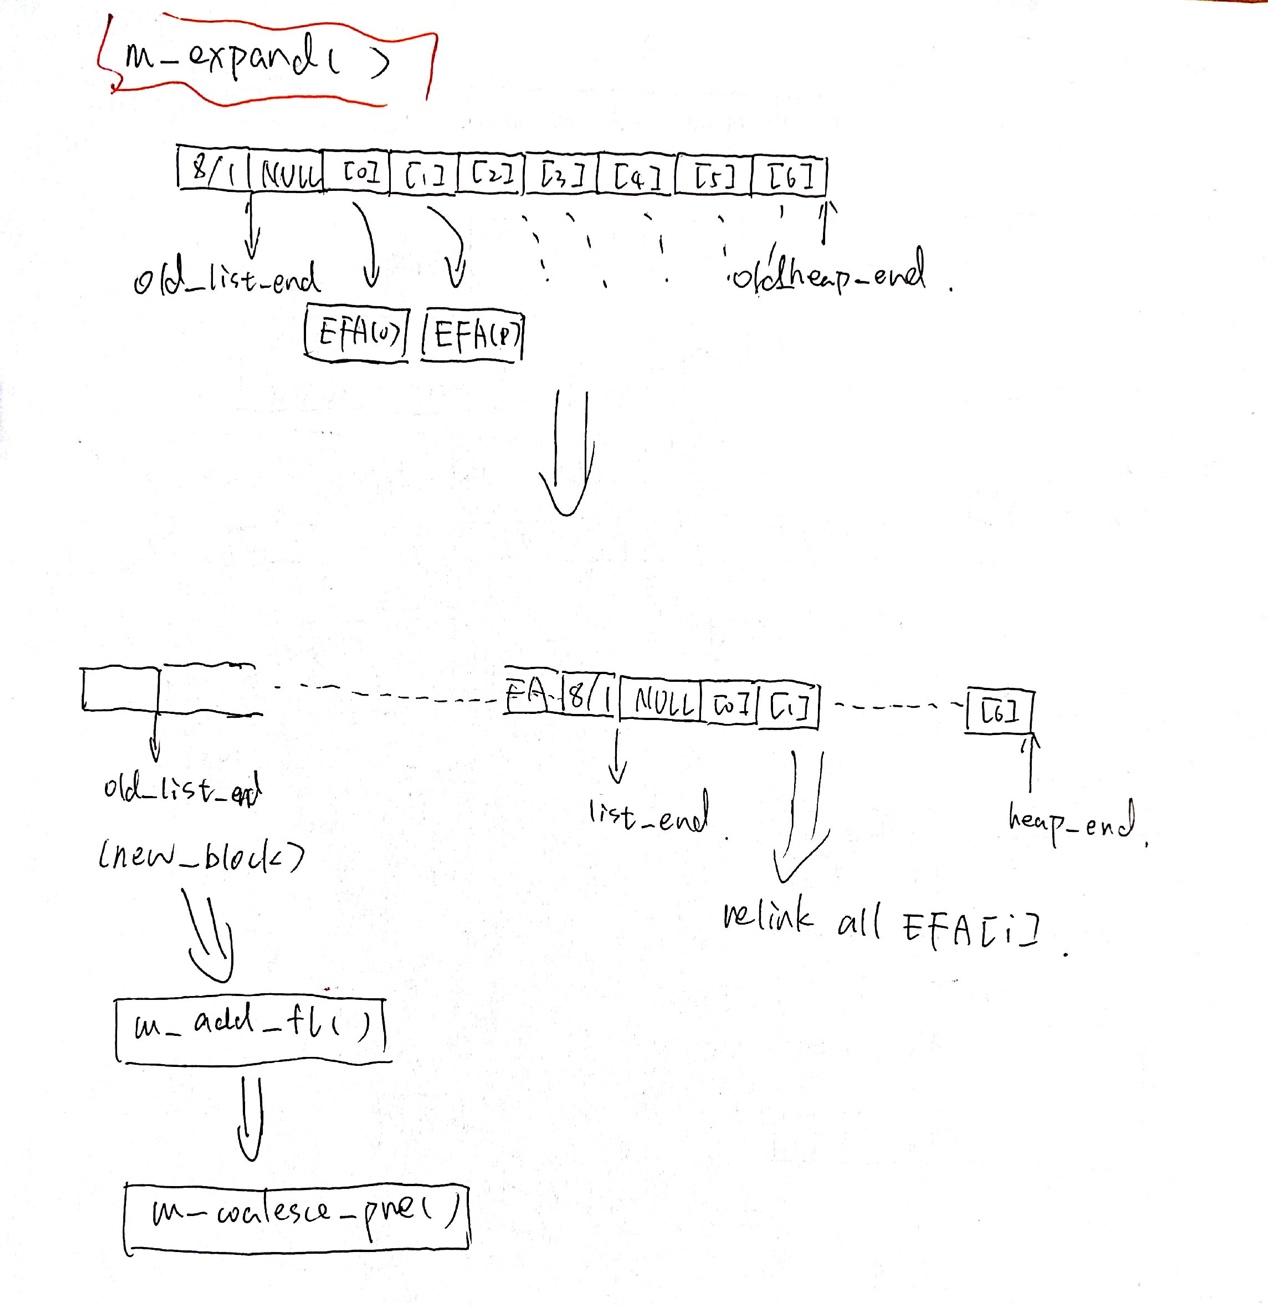 m_expand( )
8/1 NULL [0] [1] [2] [3] [4] [5] [6]
old_list_end
old_heap_end.
EFA(0) EFA(1)
FA 8/1 NULL [0] [1] [6]
old_list_end
list_end.
heap_end.
(new_block)
relink all EFA[i].
m_add_fl( )
m_coalesce_pre( )